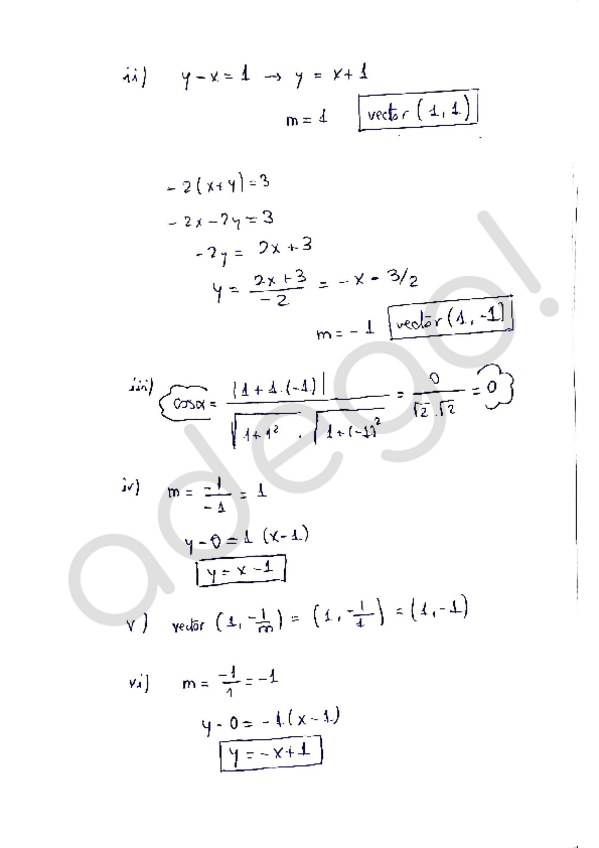 ii) y-x=1 → y = x+1
m=1 vector (1,1)
-2(x+y)=3
-2x-2y=3
-2y = 2x+3
y = \frac{2x+3}{-2} = -x - 3/2
m=-1 vector (1,-1)
iii) cosα = \frac{|1+1·(-1)|}{\sqrt{1+1²} · \sqrt{1+(-1)²}} = \frac{0}{√2·√2} = 0
iv) m = \frac{-1}{-1} = 1
y-0=1 (x-1)
y = x-1
v) vector (1, -\frac{1}{m}) = (1, -\frac{1}{1}) = (1,-1)
vi) m = \frac{-1}{1} = -1
y-0 = -1·(x-1)
y = -x+1
adego!